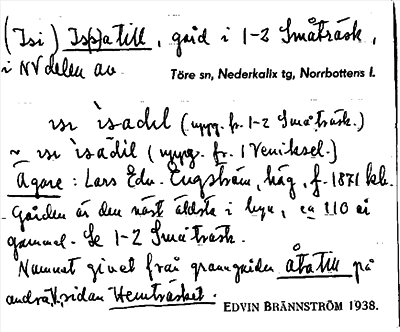 (Isi) Ispjätill, gård i 1-2 Småträsk,
i NV delen av
Töre sn, Nederkalix tg, Norrbottens l.
ɪsɪ ìsädɩl (uppg. fr. 1-2 Småträsk.)
~ ɪsɪ ìsädil (uppg. fr. 1 Veniksel.)
Ägare: Lars Edv. Engström, häg, f. 1871 kb.
Gården är den näst äldsta i byn, ca 110 år
gammal. Se 1-2 Småträsk.
Namnet givet från granngården Åtätill på
andra sidan Hemträsket.
EDVIN BRÄNNSTRÖM 1938.